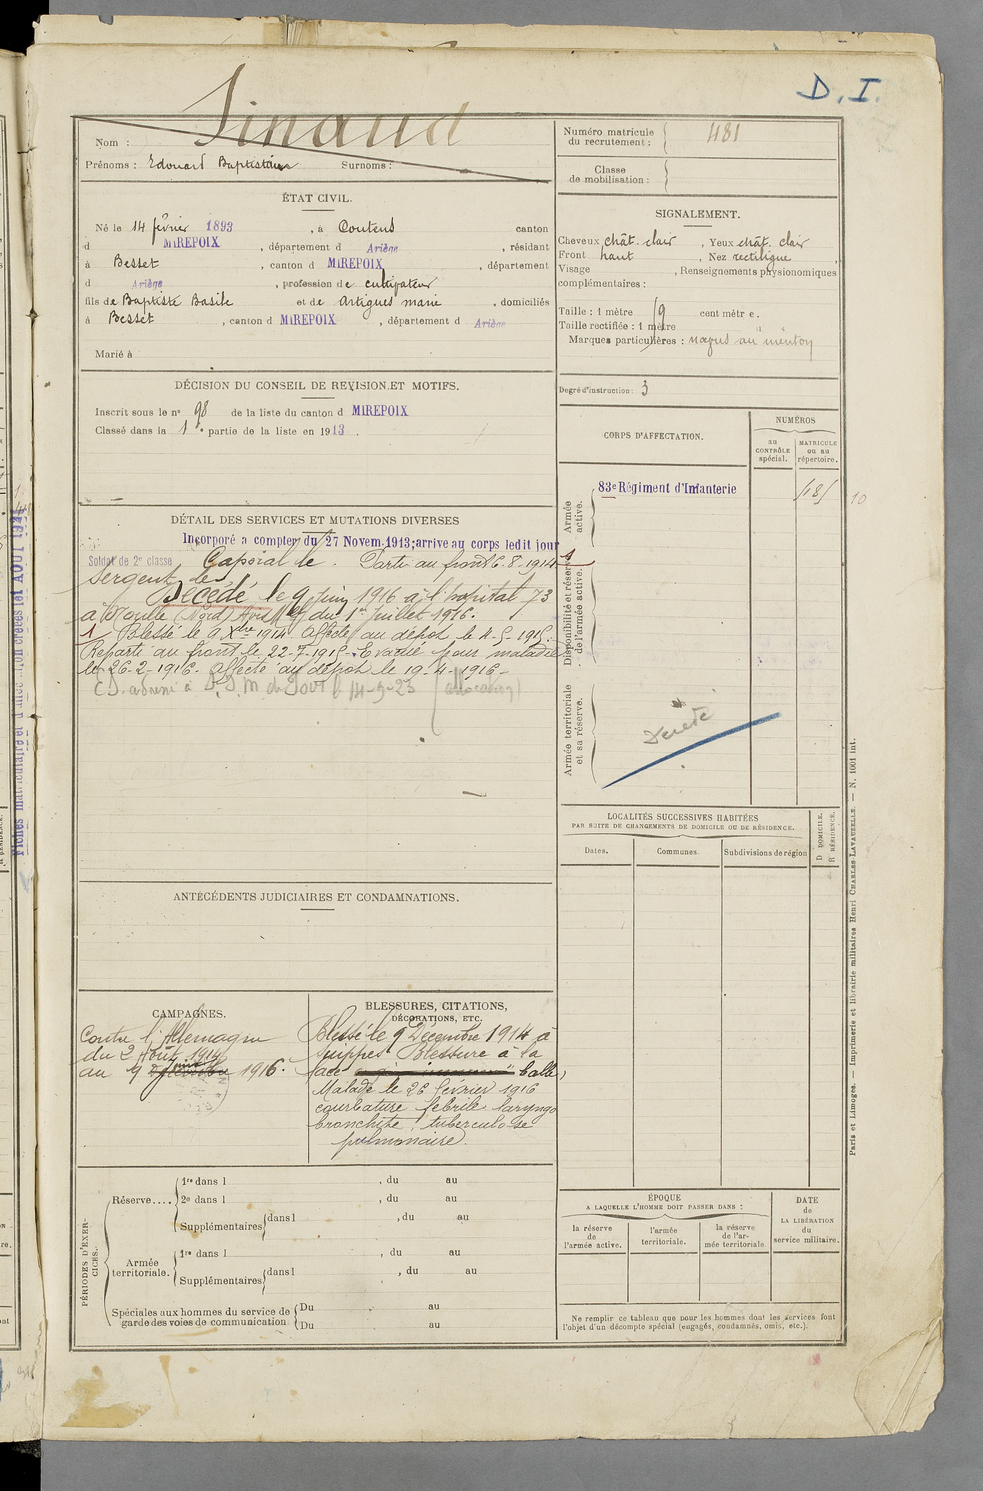 D. I.
Sinaud
Nom :
Prénoms : Edouard Baptistin Surnoms :
Numéro matricule du recrutement : 481
Classe de mobilisation :
ÉTAT CIVIL.
Né le 14 février 1893, à Coutens canton
d MIREPOIX, département d Ariège, résidant
à Besset, canton d MIREPOIX, département
d Ariège, profession de cultivateur
fils de Baptiste Basile et de Artigues marie, domiciliés
à Besset, canton d MIREPOIX, département d Ariège
Marié à
SIGNALEMENT.
Cheveux chât. clair, Yeux chât. clair
Front haut, Nez rectiligne,
Visage , Renseignements physionomiques
complémentaires :
Taille : 1 mètre 9 cent mètr e.
Taille rectifiée : 1 mètre
Marques particulières : nævus au menton
Degré d'instruction : 3
DÉCISION DU CONSEIL DE REVISION ET MOTIFS.
Inscrit sous le n° 98 de la liste du canton d MIREPOIX
Classé dans la 1e partie de la liste en 1913.
CORPS D'AFFECTATION.
NUMÉROS
au CONTRÔLE spécial.
MATRICULE ou au répertoire.
Armée active.
83e Régiment d'Infanterie
Disponibilité et réserve de l'armée active.
Armée territoriale et sa réserve.
DÉTAIL DES SERVICES ET MUTATIONS DIVERSES
Incorporé a compter du 27 Novem. 1913; arrive au corps ledit jour
Soldat de 2e classe Caporal le . Parti au front 6-8-1914
Sergent le
Décédé le 9 Juin 1916 à l'hopital 73
du 1er Juillet 1916.
1 Blessé le 9 Xbre 1914 affecté au dépot le 4-5-1915.
Reparti au front le 22-7-1915. Evacué pour maladie
le 26-2-1916. affecté au dépot le 19-4-1916-
LOCALITÉS SUCCESSIVES HABITÉES
PAR SUITE DE CHANGEMENTS DE DOMICILE OU DE RÉSIDENCE.
Dates.
Communes.
Subdivisions de région
D DOMICILE.
R RÉSIDENCE.
ANTÉCÉDENTS JUDICIAIRES ET CONDAMNATIONS.
CAMPAGNES.
Contre l'Allemagne
du 2 Août 1914
au 9 juin 1916.
BLESSURES, CITATIONS,
DÉCORATIONS, ETC.
Blessé le 9 Décembre 1914 à
Suppes Blessure à la
face balle,
Malade le 26 février 1916
courbature febrile laryngo
bronchite, tuberculose
pulmonaire.
PÉRIODES D'EXERCICES.
Réserve....
1re dans l , du au
2e dans l , du au
Supplémentaires dans l , du au
Armée territoriale.
1re dans l , du au
Supplémentaires dans l , du au
Spéciales aux hommes du service de
garde des voies de communication
Du au
Du au
ÉPOQUE
A LAQUELLE L'HOMME DOIT PASSER DANS :
la réserve de l'armée active.
l'armée territoriale.
la réserve de l'armée territoriale
DATE de LA LIBÉRATION du service militaire.
Ne remplir ce tableau que pour les hommes dont les services font
l'objet d'un décompte spécial (engagés, condamnés, omis, etc.).
Paris et Limoges. — Imprimerie et librairie militaires Henri CHARLES-LAVAUZELLE. — N. 1001 int.